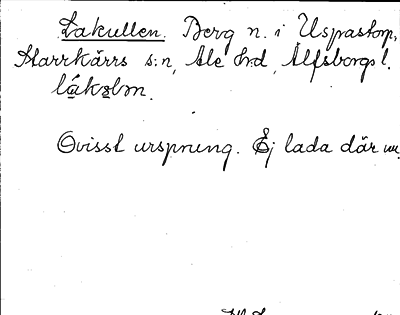 Lakullen. Berg n. i Uspastorp,
Starrkärrs s:n, Ale hd, Älfsborgs l.
lákəlm.
Ovisst ursprung. Ej lada där nu.